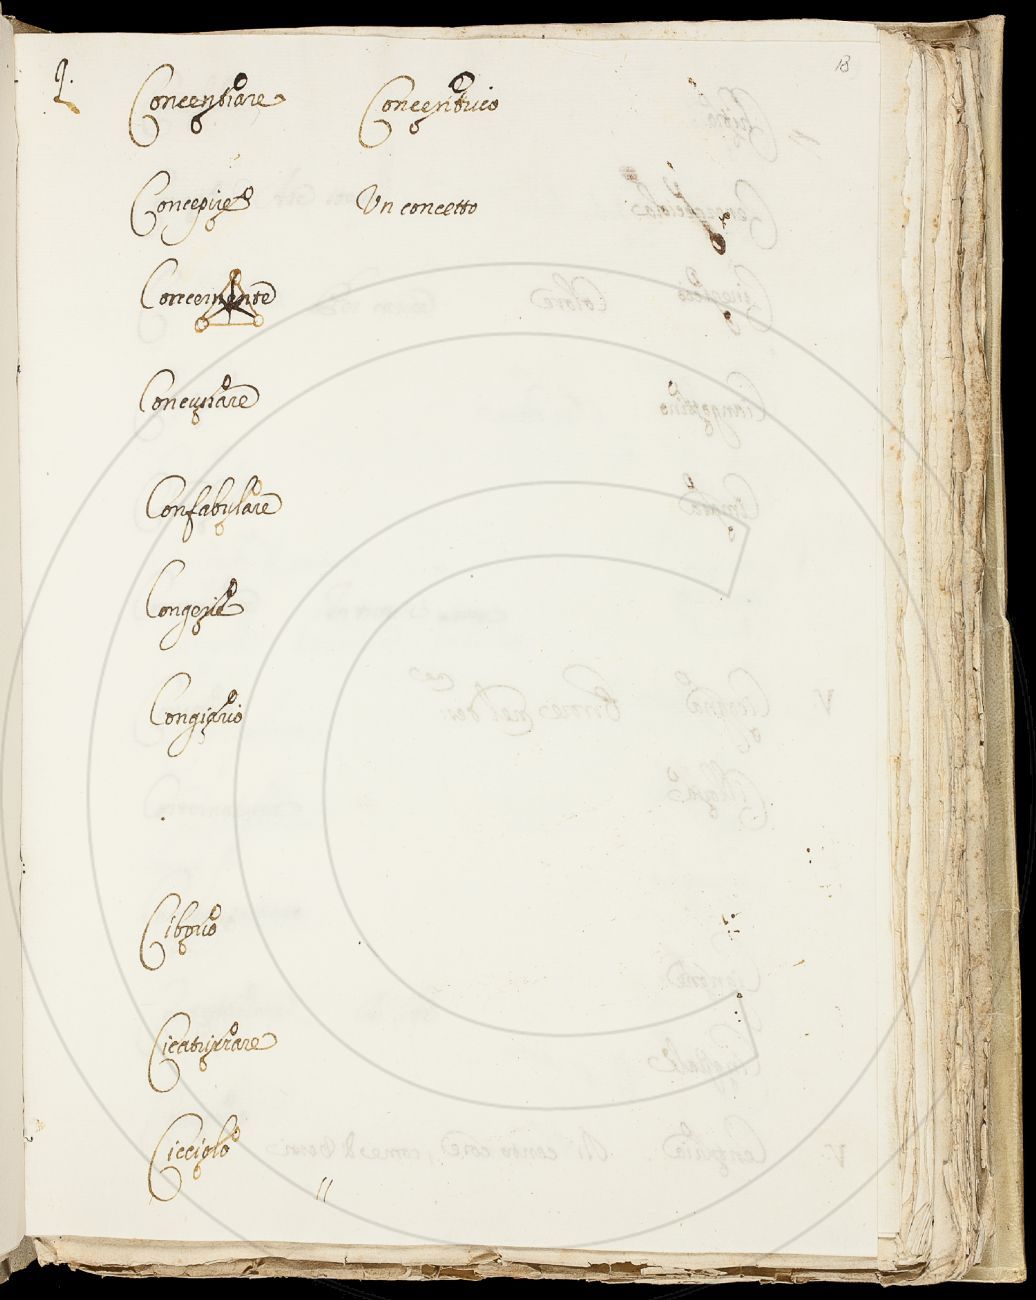 18
Q.
Concentrare Concentrico
Concepire Un concetto
Concernente
Concusare
Confabulare
Congerie
Congiario
Ciborio
Cicatrizzare
Cicciolo